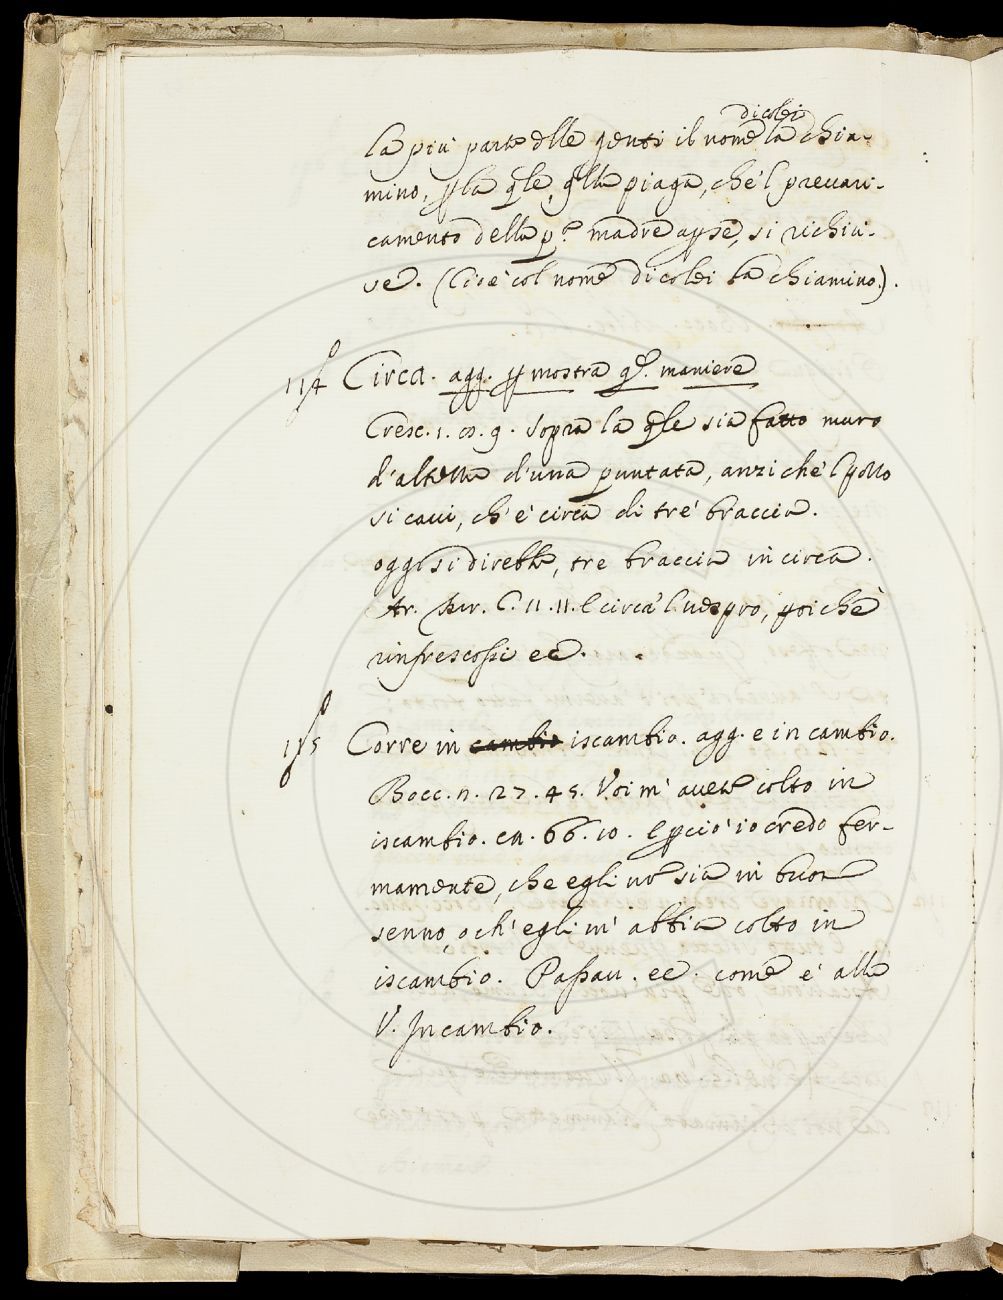 di colei
la più parte delle genti il nome la chia-
mino, p la qle, qlla piaga, che'l preuari-
camento della p.ª madre apse, si richiu-
ue. (Cioè col nome di colei la chiamino.).
114 Circa. agg. p mostra q.º maniere
Cresc. 1. co. 9. Sopra la qle sia fatto muro
d'altezza d'una puntata, anzi che'l pozzo
si caui, ch'è circa di tre braccia.
oggi si direbbe, tre braccia in circa.
Ar. Fur. C. 11. 11. E circa'l uespro, poiche
rinfrescossi ec.
115 Corre in cambio iscambio. agg. e in cambio.
Bocc. n. 27. 45. Voi m'auete colto in
iscambio. en. 66. 10. E pciò io credo fer-
mamente, che egli nō sia in buon
senno, o ch'egli m'abbia colto in
iscambio. Passau. ec. come è alla
V. Incambio.